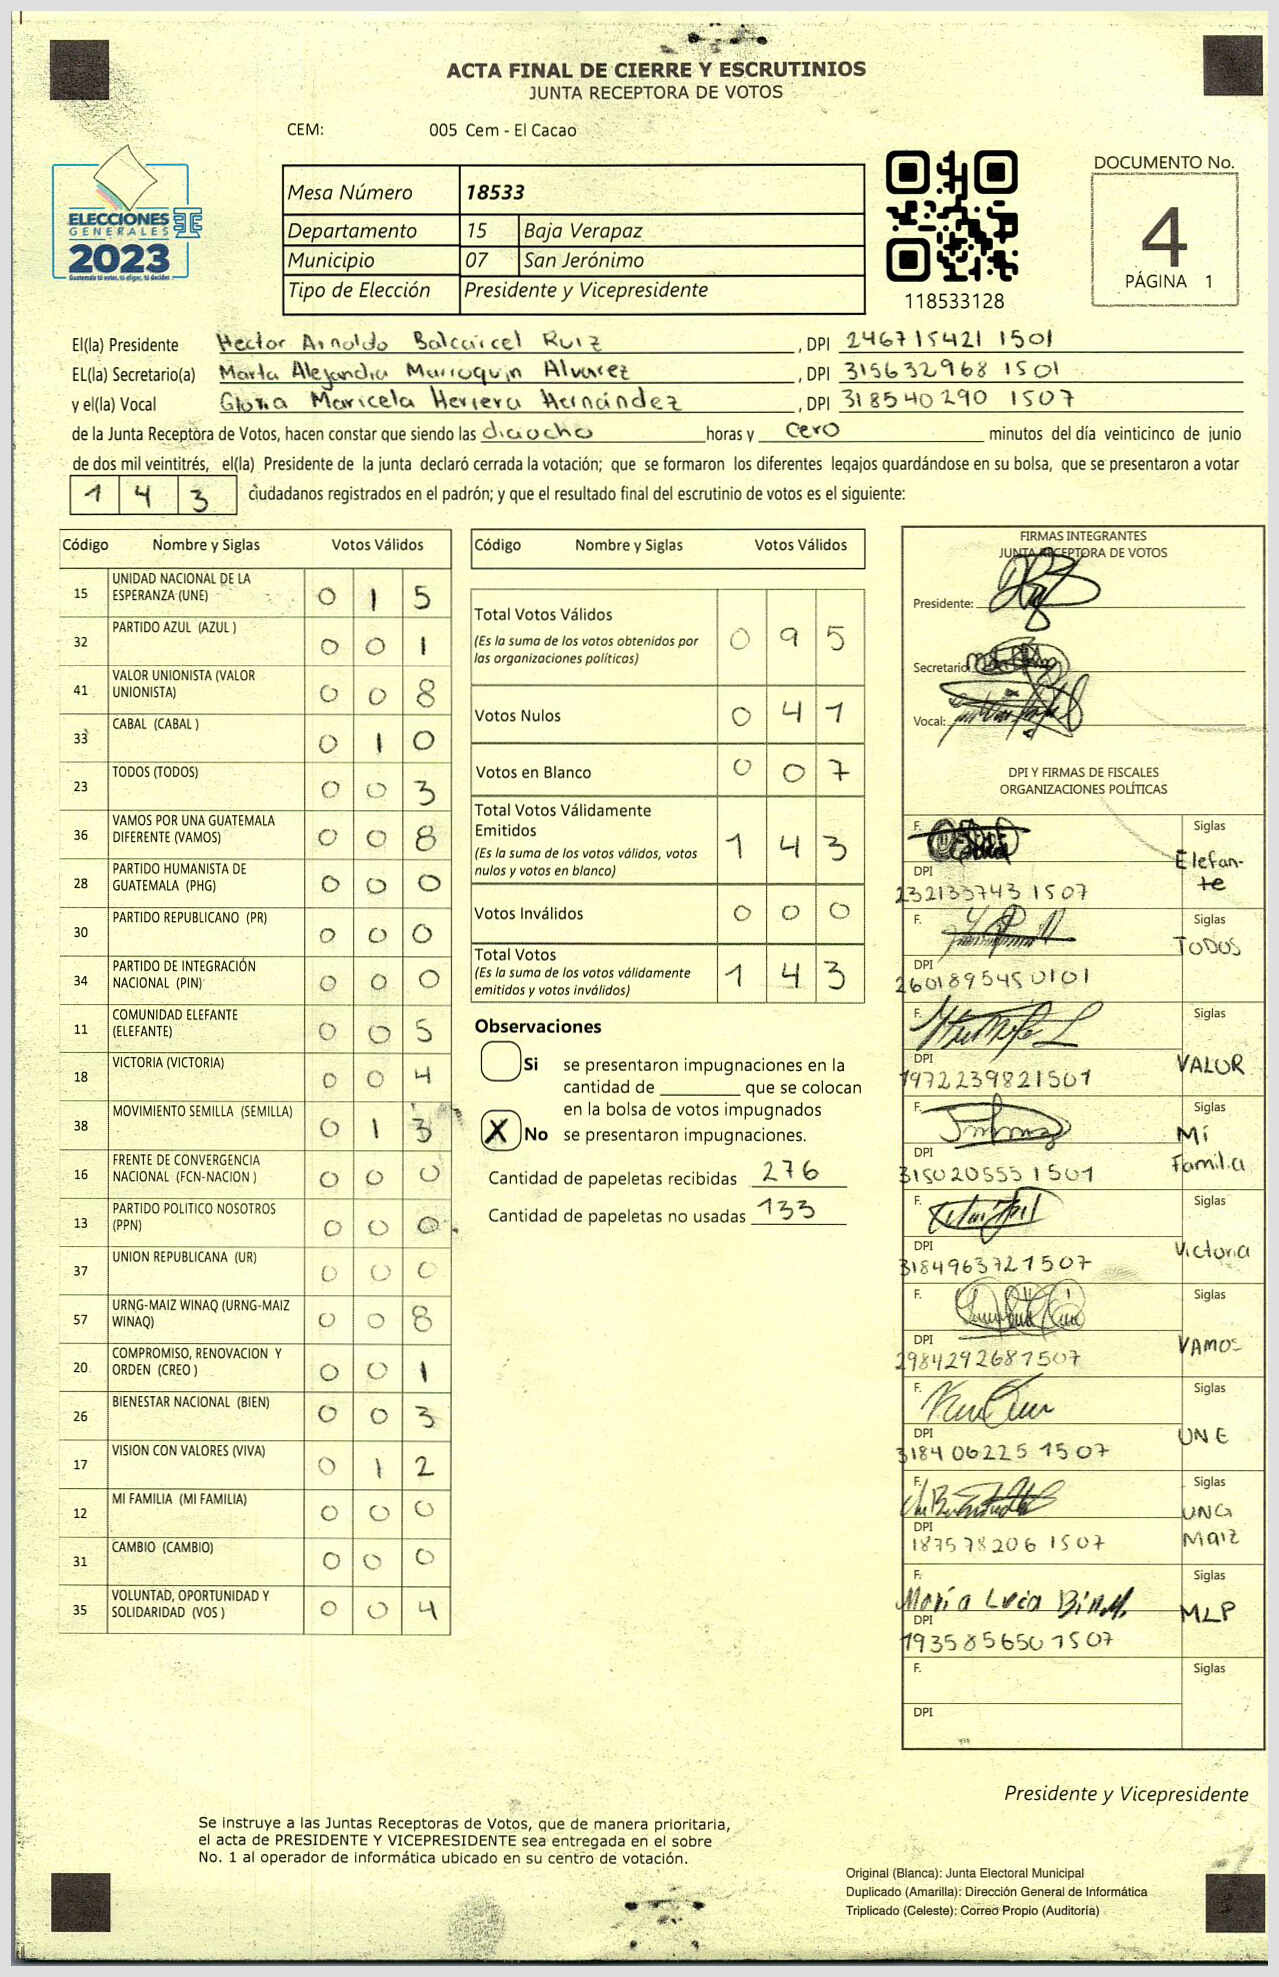 ACTA FINAL DE CIERRE Y ESCRUTINIOS
JUNTA RECEPTORA DE VOTOS
CEM: 005 Cem - El Cacao
ELECCIONES
GENERALES
2023
Guatemala tú votas, tú eliges, tú decides
Mesa Número 18533
Departamento 15 Baja Verapaz
Municipio 07 San Jerónimo
Tipo de Elección Presidente y Vicepresidente
118533128
DOCUMENTO No.
4
PÁGINA 1
El(la) Presidente Hector Arnoldo Balcarcel Ruiz , DPI 246715421 1501
EL(la) Secretario(a) Marta Alejandra Marroquin Alvarez , DPI 315632968 1501
y el(la) Vocal Gloria Maricela Herrera Hernández , DPI 318540290 1507
de la Junta Receptora de Votos, hacen constar que siendo las dieciocho horas y cero minutos del día veinticinco de junio
de dos mil veintitrés, el(la) Presidente de la junta declaró cerrada la votación; que se formaron los diferentes legajos guardándose en su bolsa, que se presentaron a votar
1 4 3 ciudadanos registrados en el padrón; y que el resultado final del escrutinio de votos es el siguiente:
Código Nombre y Siglas Votos Válidos
15 UNIDAD NACIONAL DE LA ESPERANZA (UNE) 0 1 5
32 PARTIDO AZUL (AZUL ) 0 0 1
41 VALOR UNIONISTA (VALOR UNIONISTA) 0 0 8
33 CABAL (CABAL ) 0 1 0
23 TODOS (TODOS) 0 0 3
36 VAMOS POR UNA GUATEMALA DIFERENTE (VAMOS) 0 0 8
28 PARTIDO HUMANISTA DE GUATEMALA (PHG) 0 0 0
30 PARTIDO REPUBLICANO (PR) 0 0 0
34 PARTIDO DE INTEGRACIÓN NACIONAL (PIN) 0 0 0
11 COMUNIDAD ELEFANTE (ELEFANTE) 0 0 5
18 VICTORIA (VICTORIA) 0 0 4
38 MOVIMIENTO SEMILLA (SEMILLA) 0 1 3
16 FRENTE DE CONVERGENCIA NACIONAL (FCN-NACION ) 0 0 0
13 PARTIDO POLITICO NOSOTROS (PPN) 0 0 0
37 UNION REPUBLICANA (UR) 0 0 0
57 URNG-MAIZ WINAQ (URNG-MAIZ WINAQ) 0 0 8
20 COMPROMISO, RENOVACION Y ORDEN (CREO ) 0 0 1
26 BIENESTAR NACIONAL (BIEN) 0 0 3
17 VISION CON VALORES (VIVA) 0 1 2
12 MI FAMILIA (MI FAMILIA) 0 0 0
31 CAMBIO (CAMBIO) 0 0 0
35 VOLUNTAD, OPORTUNIDAD Y SOLIDARIDAD (VOS ) 0 0 4
Código Nombre y Siglas Votos Válidos
Total Votos Válidos 0 9 5
(Es la suma de los votos obtenidos por
las organizaciones políticas)
Votos Nulos 0 4 1
Votos en Blanco 0 0 7
Total Votos Válidamente
Emitidos 1 4 3
(Es la suma de los votos válidos, votos
nulos y votos en blanco)
Votos Inválidos 0 0 0
Total Votos 1 4 3
(Es la suma de los votos válidamente
emitidos y votos inválidos)
Observaciones
Si se presentaron impugnaciones en la
cantidad de ________ que se colocan
en la bolsa de votos impugnados
X No se presentaron impugnaciones.
Cantidad de papeletas recibidas 276
Cantidad de papeletas no usadas 133
FIRMAS INTEGRANTES
JUNTA RECEPTORA DE VOTOS
Presidente:
Secretario
Vocal:
DPI Y FIRMAS DE FISCALES
ORGANIZACIONES POLÍTICAS
F. Siglas
Elefan-
te
DPI
232133743 1507
F. Siglas
TODOS
DPI
260189545 0101
F. Siglas
VALOR
DPI
1972239821501
F. Siglas
Mi
Familia
DPI
315020555 1501
F. Siglas
Victoria
DPI
3184963721507
F. Siglas
VAMOS
DPI
2984292681507
F. Siglas
UNE
DPI
318406225 1507
F. Siglas
UNG
Maiz
DPI
187578206 1507
F. Siglas
María Lucia
MLP
DPI
193585650 1507
F. Siglas
DPI
Presidente y Vicepresidente
Se instruye a las Juntas Receptoras de Votos, que de manera prioritaria,
el acta de PRESIDENTE Y VICEPRESIDENTE sea entregada en el sobre
No. 1 al operador de informática ubicado en su centro de votación.
Original (Blanca): Junta Electoral Municipal
Duplicado (Amarilla): Dirección General de Informática
Triplicado (Celeste): Correo Propio (Auditoría)